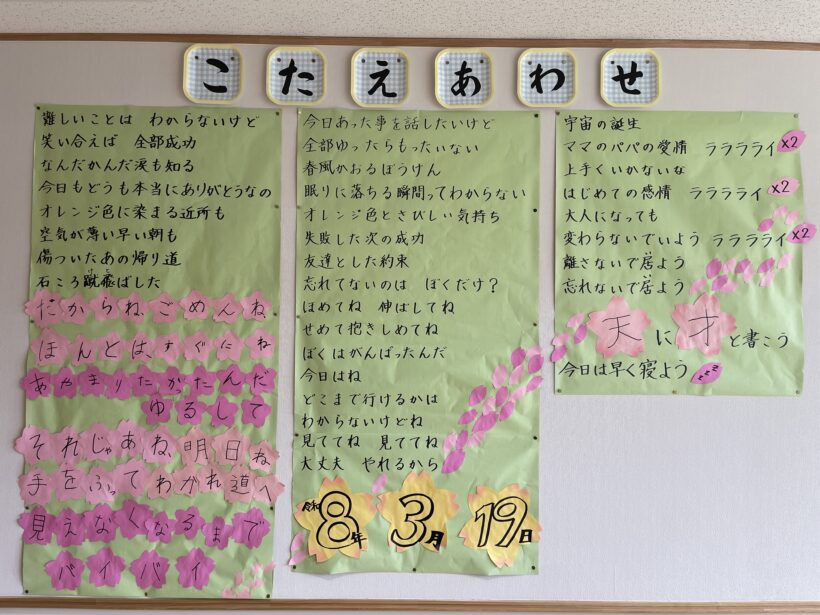 こたえあわせ
難しいことは わからないけど
笑い合えば 全部成功
なんだかんだ涙も知る
今日もどうも本当にありがとうなの
オレンジ色に染まる近所も
空気が薄い早い朝も
傷ついたあの帰り道
石ころ蹴飛ばした
だからね、ごめんね、
ほんとは、すぐにね
あやまりたかたんだ
ゆるして
それじゃあね、明日ね
手をふってわかれ道へ
見えなくなるまで
バイバイ
今日あった事を話したいけど
全部ゆったらもったいない
春風かおるぼうけん
眠りに落ちる瞬間ってわからない
オレンジ色とさびしい気持ち
失敗した次の成功
友達とした約束
忘れてないのは ぼくだけ?
ほめてね 伸ばしてね
せめて抱きしめてね
ぼくはがんばったんだ
今日はね
どこまで行けるかは
わからないけどね
見ててね 見ててね
大丈夫 やれるから
令和8年3月19日
宇宙の誕生
ママのパパの愛情 ララララライ×2
上手くいかないな
はじめての感情 ララララライ×2
大人になっても
変わらないでいよう ララララライ×2
離さないで居よう
忘れないで居よう
天に才と書こう
今日は早く寝よう zzz